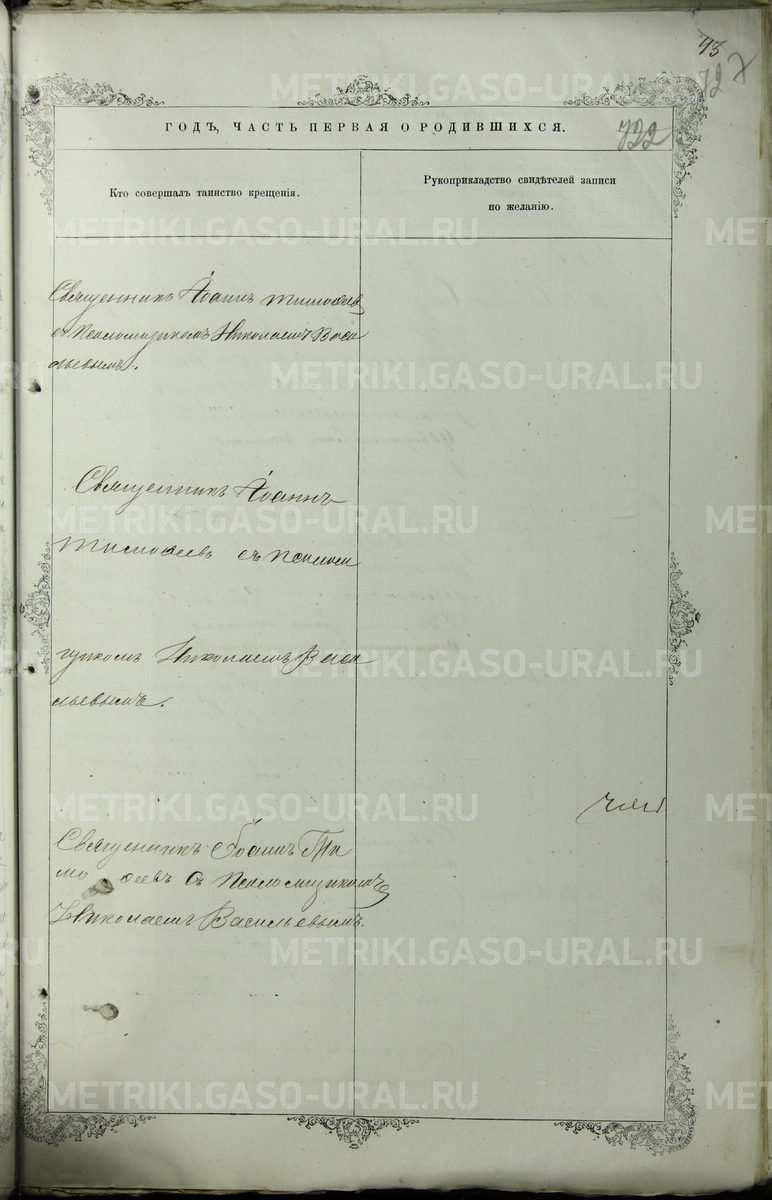 93
722
ГОДЪ, ЧАСТЬ ПЕРВАЯ О РОДИВШИХСЯ.
722
Кто совершалъ таинство крещенія.
Рукоприкладство свидѣтелей записи
по желанію.
Священникъ Іоаннъ Тимоѳеевъ
съ Псаломщикомъ Николаемъ Васи
льевымъ.
Священникъ Іоаннъ
Тимоѳеевъ съ псалом
щикомъ Николаемъ Васи
льевымъ.
Священникъ Іоаннъ Ти
моѳеевъ съ Псаломщикомъ
Николаемъ Васильевымъ.
METRIKI.GASO-URAL.RU